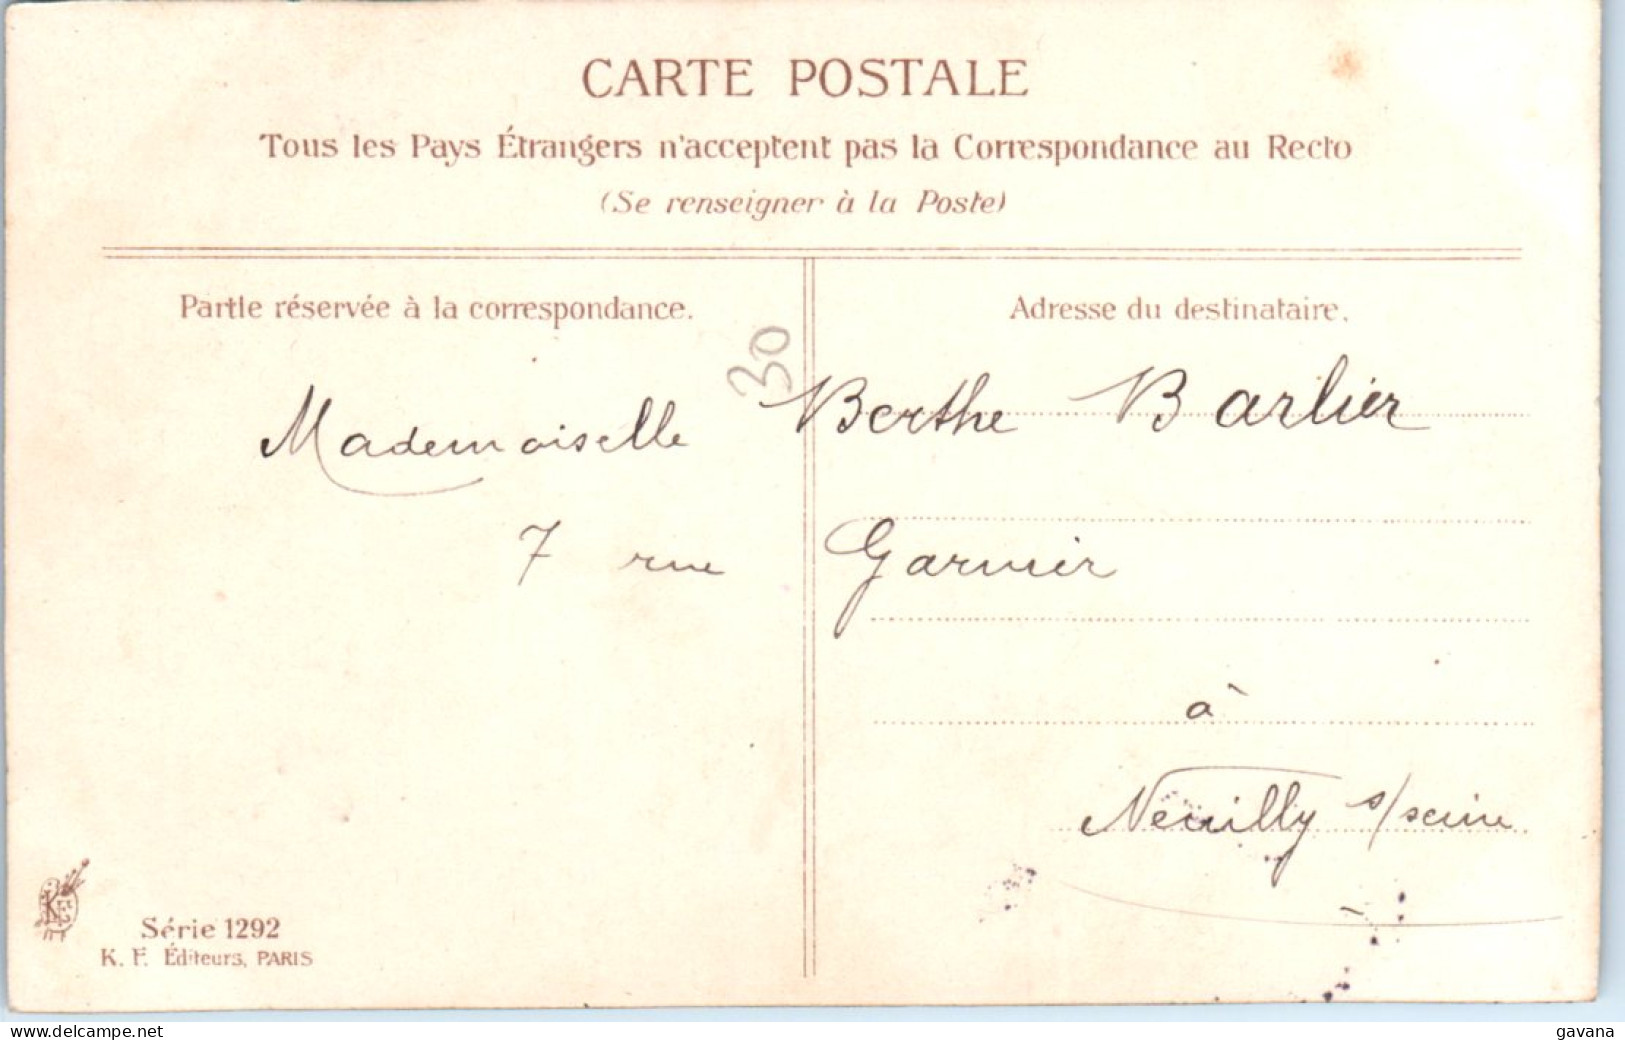 CARTE POSTALE
Tous les Pays Étrangers n'acceptent pas la Correspondance au Recto
(Se renseigner à la Poste)
Partie réservée à la correspondance.
Adresse du destinataire.
30
Mademoiselle Berthe Barlier
7 rue Garnier
à
Neuilly s/seine
KF
Série 1292
K. F. Éditeurs, PARIS
www.delcampe.net
gavana